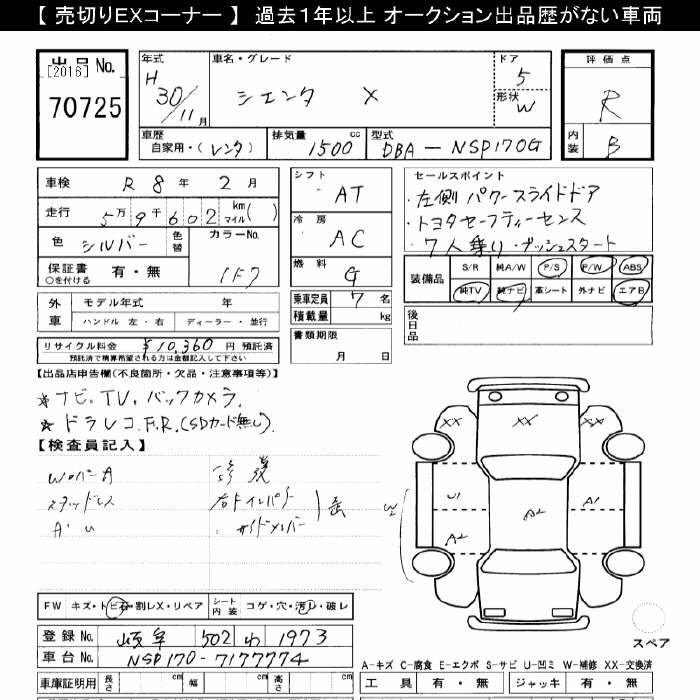 【 売切りEXコーナー 】 過去1年以上 オークション出品歴がない車両
出品 No.
[2016]
70725
年式 H 30/11 月
車名・グレード シエンタ X
ドア 5
形状 W
評価点 R
内装 B
車歴 自家用・(レンタ)
排気量 1500 cc
型式 DBA-NSP170G
車検 R 8 年 2 月
走行 5万9千602 km マイル( )
色 シルバー 色替
カラーNo. 1F7
保証書 有・無
○を付ける
シフト AT
冷房 AC
燃料 G
乗車定員 7 名
積載量 kg
書類期限
月 日
セールスポイント
・左側パワースライドドア
・トヨタセーフティーセンス
・7人乗り・プッシュスタート
装備品 S/R 純A/W P/S P/W ABS
純TV 純ナビ 革シート 外ナビ エアB
後日品
外車 モデル年式 年
ハンドル 左・右 ディーラー・並行
リサイクル料金 ¥10,360 円 預託済
預託済で精算希望される方は金額記入して下さい
【出品店申告欄(不良箇所・欠品・注意事項等)】
★ナビ.TV.バックカメラ.
★ドラレコ.F.R.(SDカード無し).
【検査員記入】
スタッドレス
右ドインパクト
サイドメンバー
XX XX XX
U1 A2 A1
A2
FW キズ・トビ石・割レX・リペア
シート内装 コゲ・穴・汚レ・破レ
登録No. 岐阜 502 わ 1973
車台No. NSP170-7177774
スペア
A-キズ C-腐食 E-エクボ S-サビ U-凹ミ W-補修 XX-交換済
車庫証明用 長さ cm 幅 cm 高さ cm
工具 有・無 ジャッキ 有・無